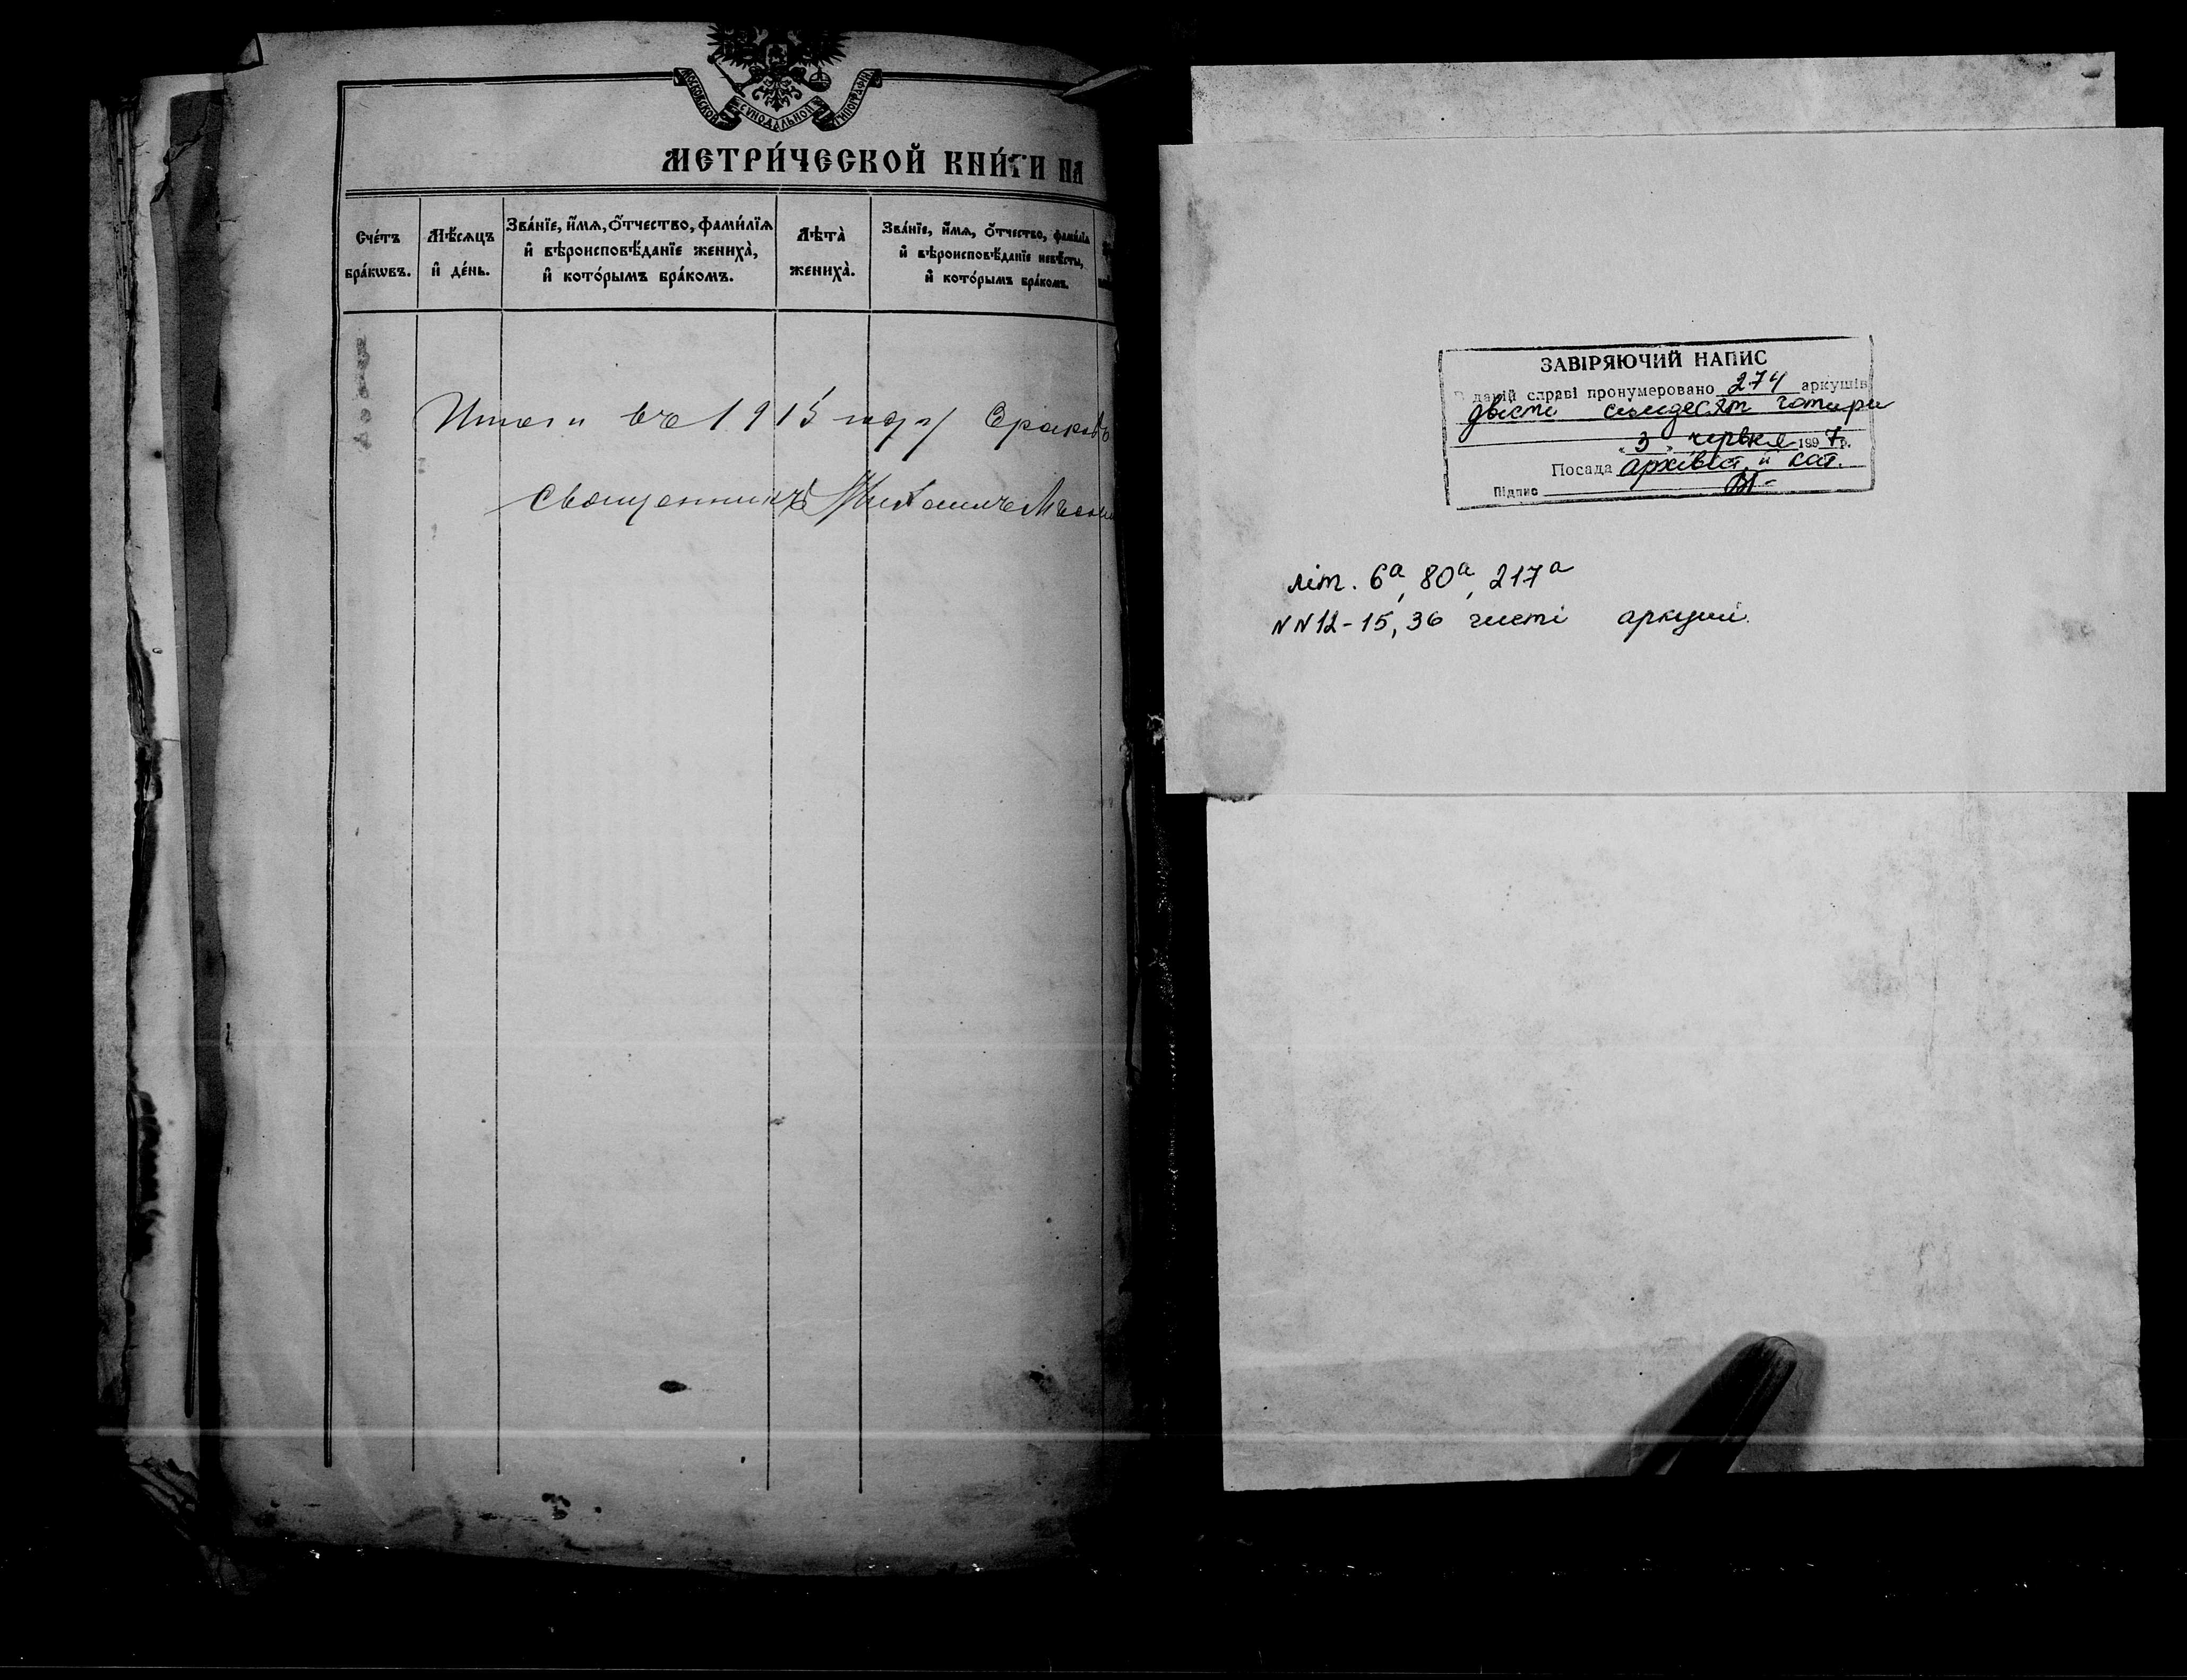 МОСКОВСКОЙ СѴНОДАЛЬНОЙ ТИПОГРАФІИ
МЕТРИ́ЧЕСКОЙ КНИ́ГИ НА
Сче́тъ бра́кѡвъ.
Мѣ́сяцъ и҆ де́нь.
Зва́нїе, и҆́мя, ѻ҆́тчество, фами́лїя
и҆ вѣроисповѣ́данїе жениха̀,
и҆ кото́рымъ бра́комъ.
Лѣта̀ жениха̀.
Зва́нїе, и҆́мя, ѻ҆́тчество, фами́лїя
и҆ вѣроисповѣ́данїе невѣ́сты,
и҆ кото́рымъ бра́комъ.
Итого въ 1915 году браковъ
Священникъ Михаилъ
ЗАВІРЯЮЧИЙ НАПИС
В даній справі пронумеровано 274 аркушів
двісті сімдесят чотири
„3„ червня 1997р.
Посада архівіст II кат.
Підпис
літ. 6а, 80а, 217а
NN12-15, 36 чисті аркуші.